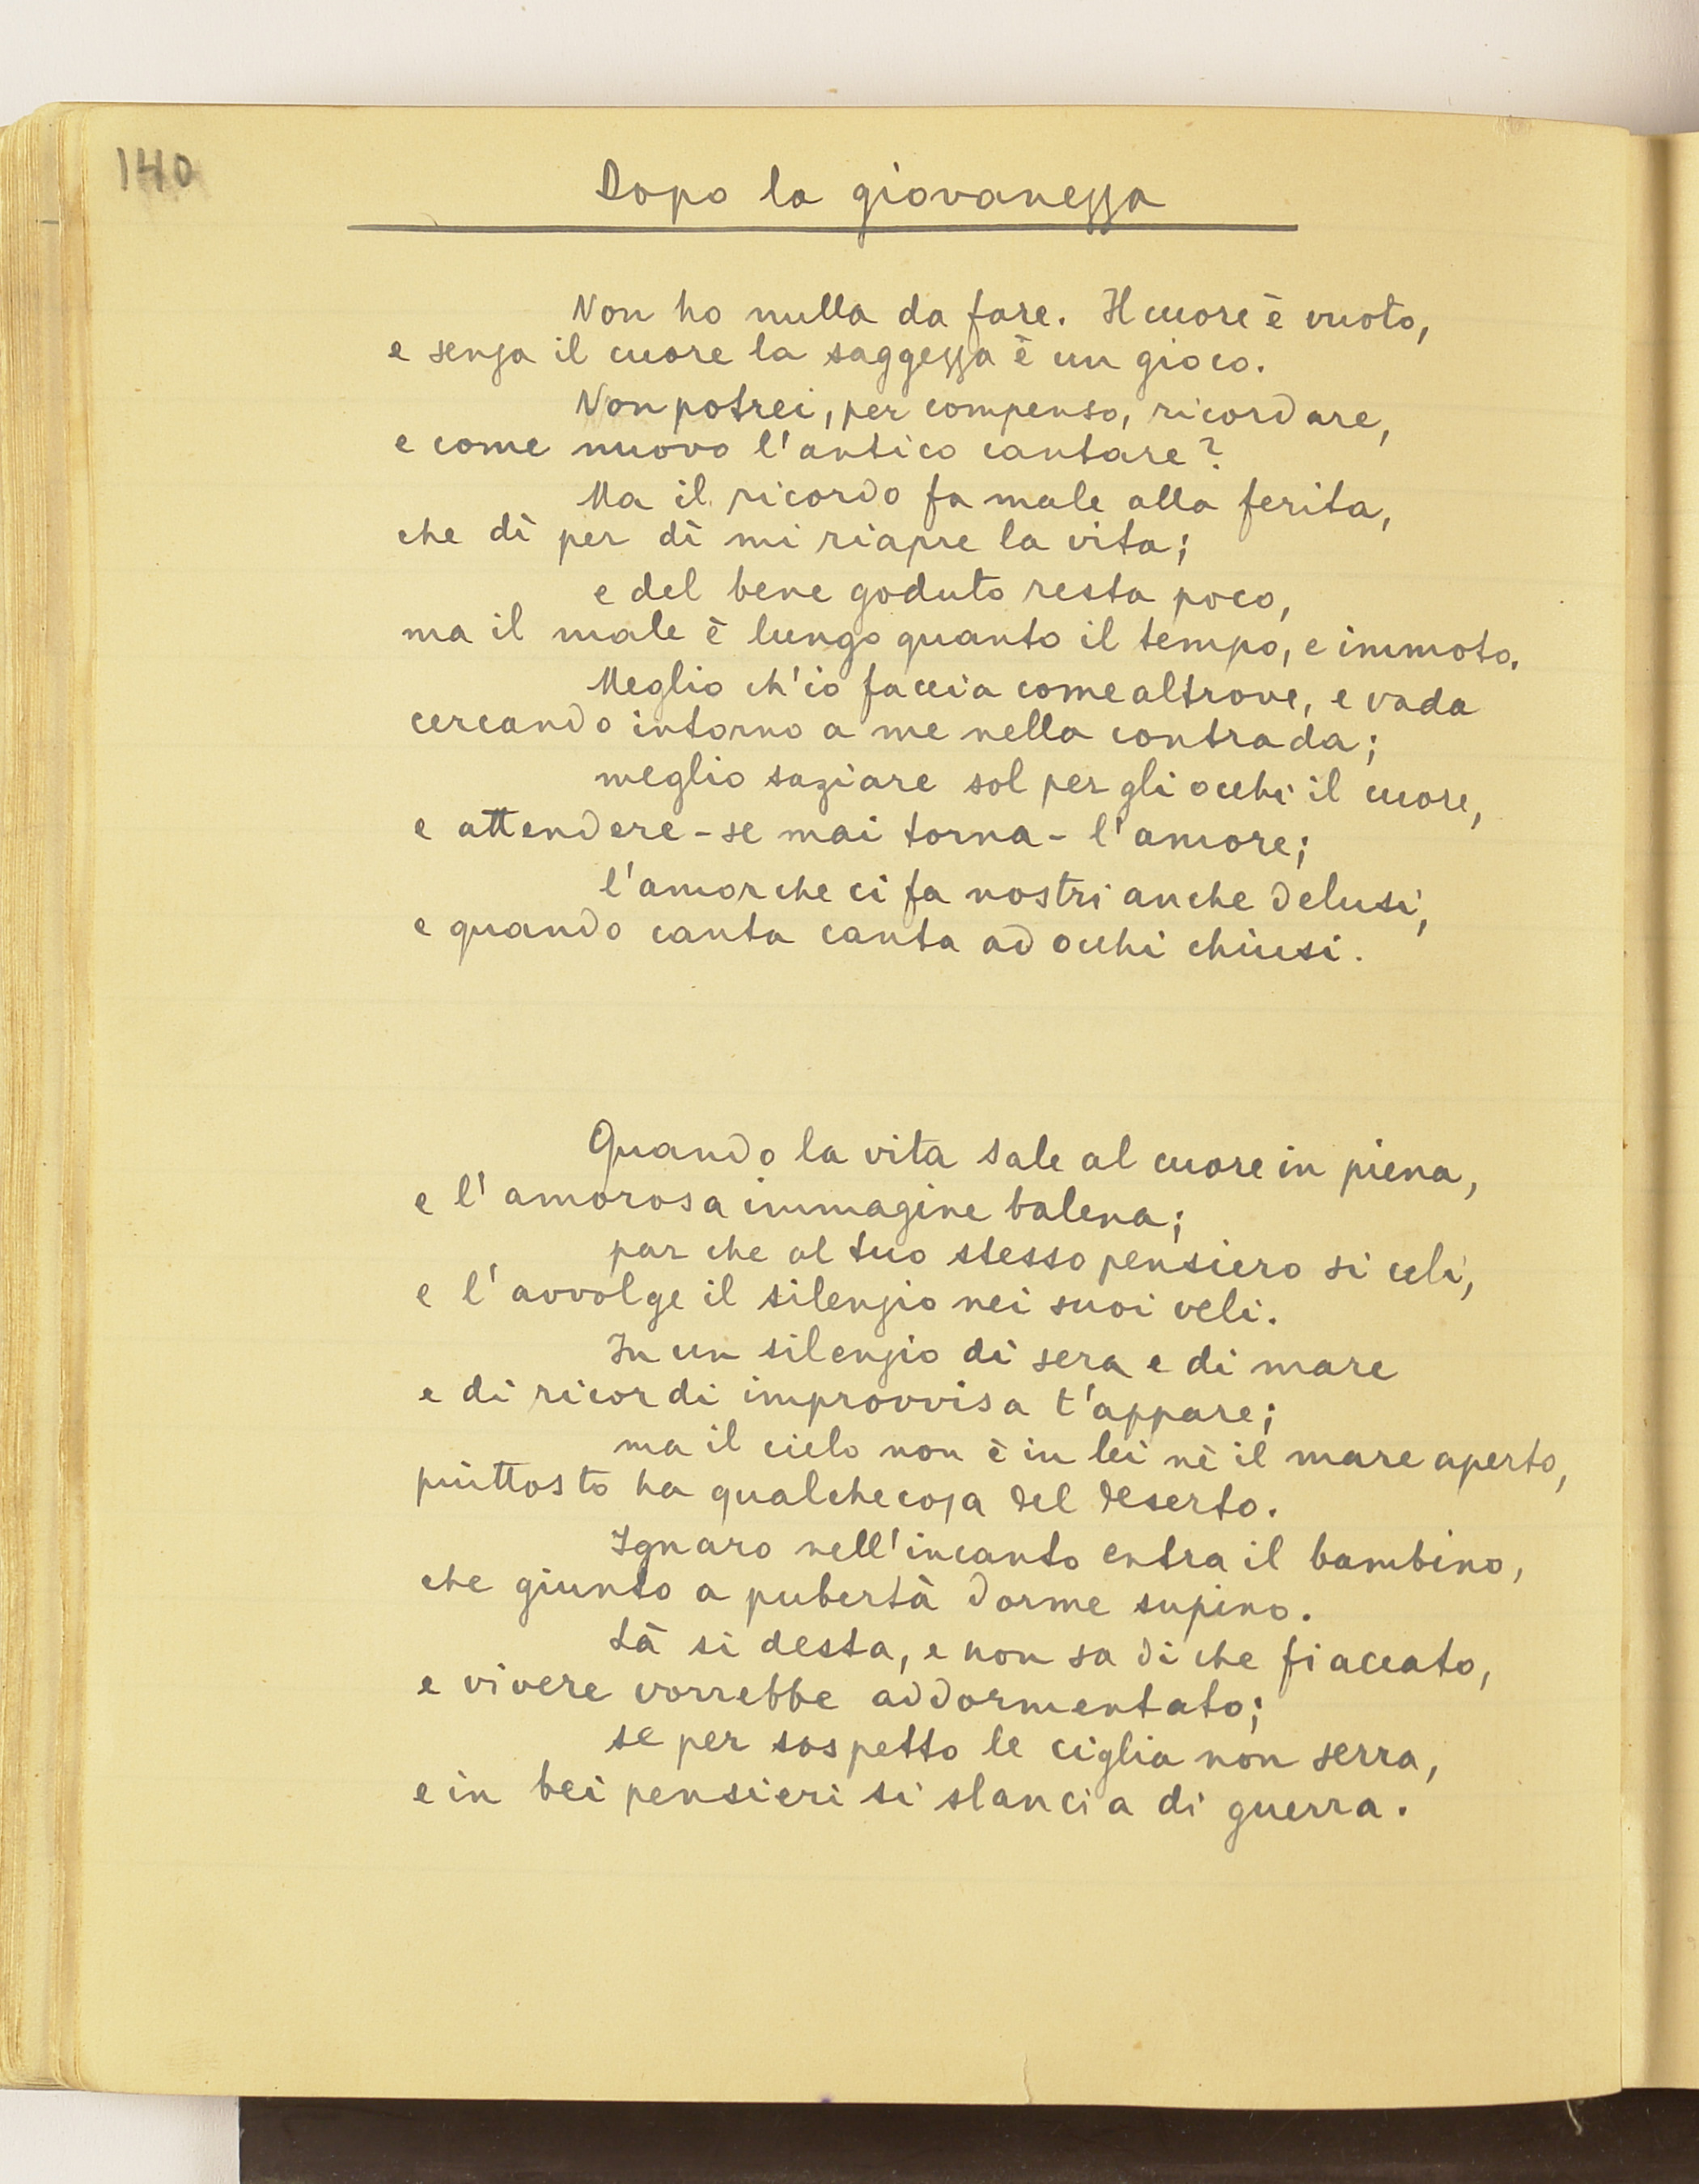 140
Dopo la giovanezza
Non ho nulla da fare. Il cuore è vuoto,
e senza il cuore la saggezza è un gioco.
Non potrei, per compenso, ricordare,
e come nuovo l'antico cantare?
Ma il ricordo fa male alla ferita,
che dì per dì mi riapre la vita;
e del bene goduto resta poco,
ma il male è lungo quanto il tempo, e immoto.
Meglio ch'io faccia come altrove, e vada
cercando intorno a me nella contrada;
meglio saziare sol per gli occhi il cuore,
e attendere - se mai torna - l'amore;
l'amor che ci fa nostri anche delusi,
e quando canta canta ad occhi chiusi.
Quando la vita sale al cuore in piena,
e l'amorosa immagine balena;
par che al tuo stesso pensiero si celi,
e l'avvolge il silenzio nei suoi veli.
In un silenzio di sera e di mare
e di ricordi improvvisa t'appare;
ma il cielo non è in lei nè il mare aperto,
piuttosto ha qualchecosa del deserto.
Ignaro nell'incanto entra il bambino,
che giunto a pubertà dorme supino.
Là si desta, e non sa di che fiaccato,
e vivere vorrebbe addormentato;
se per sospetto le ciglia non serra,
e in bei pensieri si slancia di guerra.